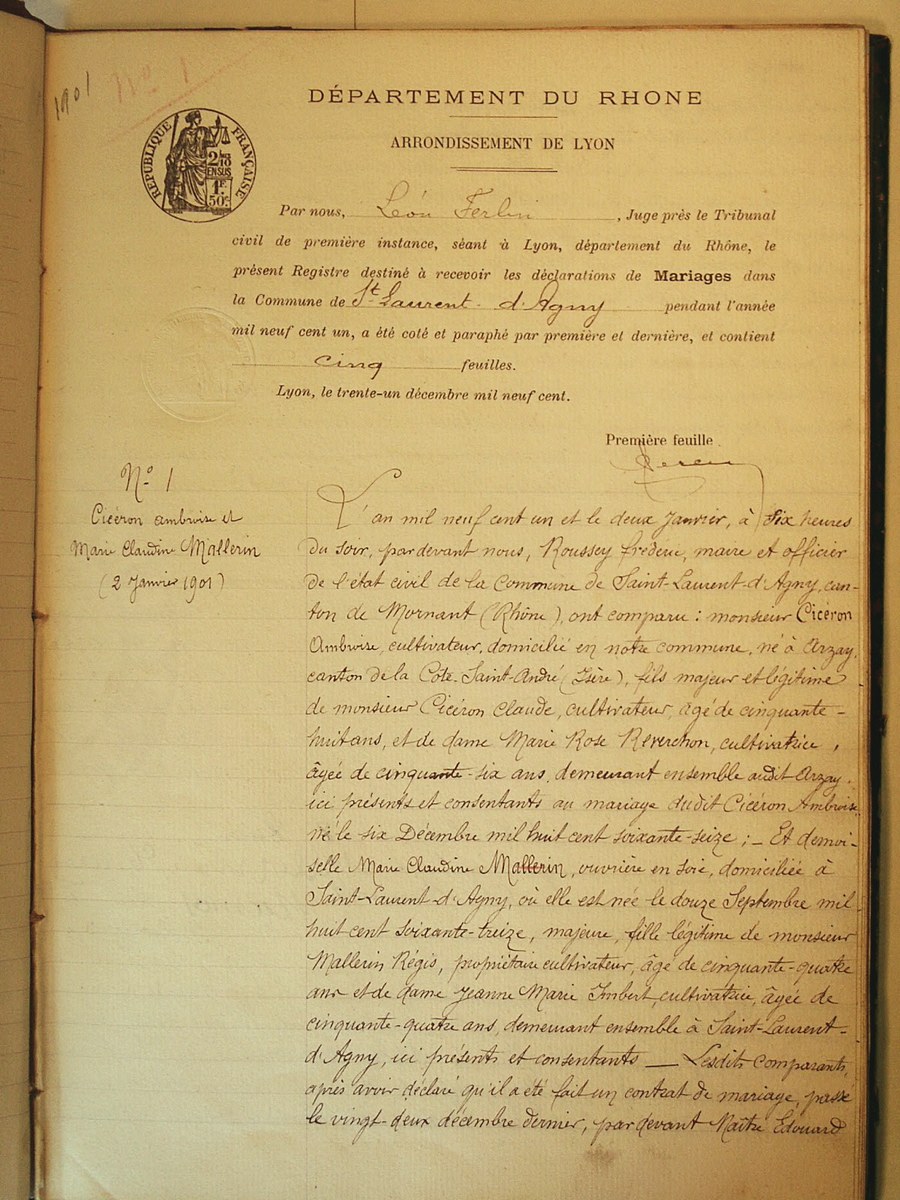 1901
No 1
DÉPARTEMENT DU RHONE
ARRONDISSEMENT DE LYON
RÉPUBLIQUE FRANÇAISE
2/10
EN SUS
1F
50c
Par nous, Léon Ferlin, Juge près le Tribunal
civil de première instance, séant à Lyon, département du Rhône, le
présent Registre destiné à recevoir les déclarations de Mariages dans
la Commune de St Laurent d'Agny pendant l'année
mil neuf cent un, a été coté et paraphé par première et dernière, et contient
cinq feuilles.
Lyon, le trente-un décembre mil neuf cent.
Première feuille
No 1
Cicéron ambroise et
Marie Claudine Mallerin
(2 Janvier 1901)
L'an mil neuf cent un et le deux Janvier, à Six heures
du soir, pardevant nous, Roussey frédéric, maire et officier
de l'état civil de la Commune de Saint-Laurent-d'Agny, can-
ton de Mornant (Rhône), ont comparu : monsieur Cicéron
Ambroise, cultivateur, domicilié en notre commune, né à Arzay,
canton de la Côte-Saint-André (Isère), fils majeur et légitime
de monsieur Cicéron Claude, cultivateur, âgé de cinquante-
huit ans, et de dame Marie Rose Reverchon, cultivatrice,
âgée de cinquante-six ans, demeurant ensemble audit Arzay,
ici présents et consentants au mariage dudit Cicéron Ambroise,
né le six Décembre mil huit cent soixante-seize ; — Et demoi-
selle Marie Claudine Mallerin, ouvrière en soie, domiciliée à
Saint-Laurent-d'Agny, où elle est née le douze Septembre mil
huit cent soixante-treize, majeure, fille légitime de monsieur
Mallerin Régis, propriétaire cultivateur, âgé de cinquante-quatre
ans et de dame Jeanne Marie Imbert, cultivatrice, âgée de
cinquante-quatre ans, demeurant ensemble à Saint-Laurent-
d'Agny, ici présents et consentants — Lesdits comparants,
après avoir déclaré qu'il a été fait un contrat de mariage, passé
le vingt-deux décembre dernier, pardevant Maître Edouard